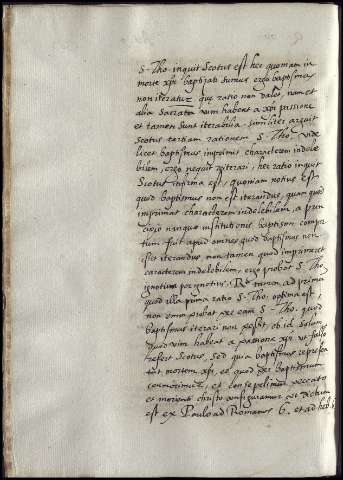 S. Tho. inquit Scotus est hec quoniam in
morte xpi baptizati sumus ergo baptismus
non iteratur que ratio non valet, nam et
alia sacramenta vim habent a xpi passione
et tamen sunt iterabilia. similiter arguit
Scotus tertiam rationem S. Tho. vide
licet baptismus imprimit characterem indele
bilem, ergo nequit reiterari, hec ratio inquit
Scotus infirma est, quoniam notius est
quod baptismus non est iterandus, quam quod
imprimat characterem indelebilem, a prin
cipio namque institutionis baptismi comper
tum fuit apud omnes quod baptismus non
esset iterandus non tamen quod imprimeret
caracterem indelebilem, ergo probat S. Tho.
ignotum per ignotius. Rº tamen ad primam
quod illa prima ratio S. Tho. optima est,
non enim probat per eam S. Tho. quod
baptismus iterari non possit ob id solum
quod vim habeat a passione xpi ut falso
refert Scotus, sed quia baptismus represen
tat mortem xpi, eo quod per baptismum
commorimur, et consepelimur peccato
et morienti christo configuramur
est ex Paulo ad Romanos 6. et ad heb.